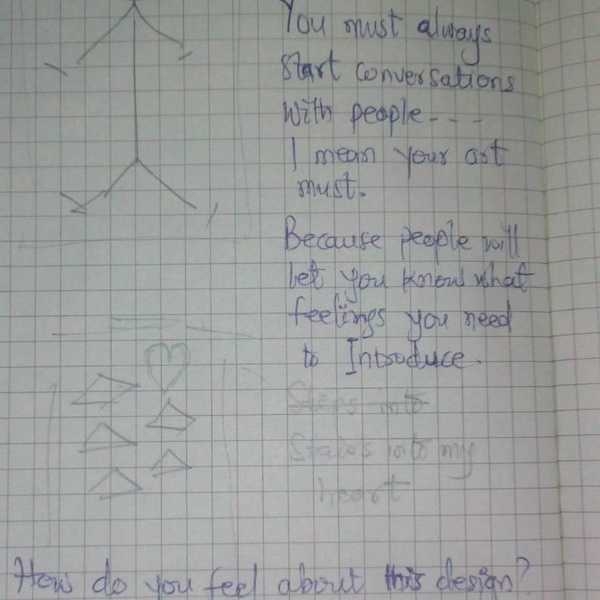 You must always
Start conversations
With people - - -
I mean your art
must.
Because people will
let you know what
feelings you need
to Introduce.
Steps into
Staires into my
heart
How do you feel about this design?